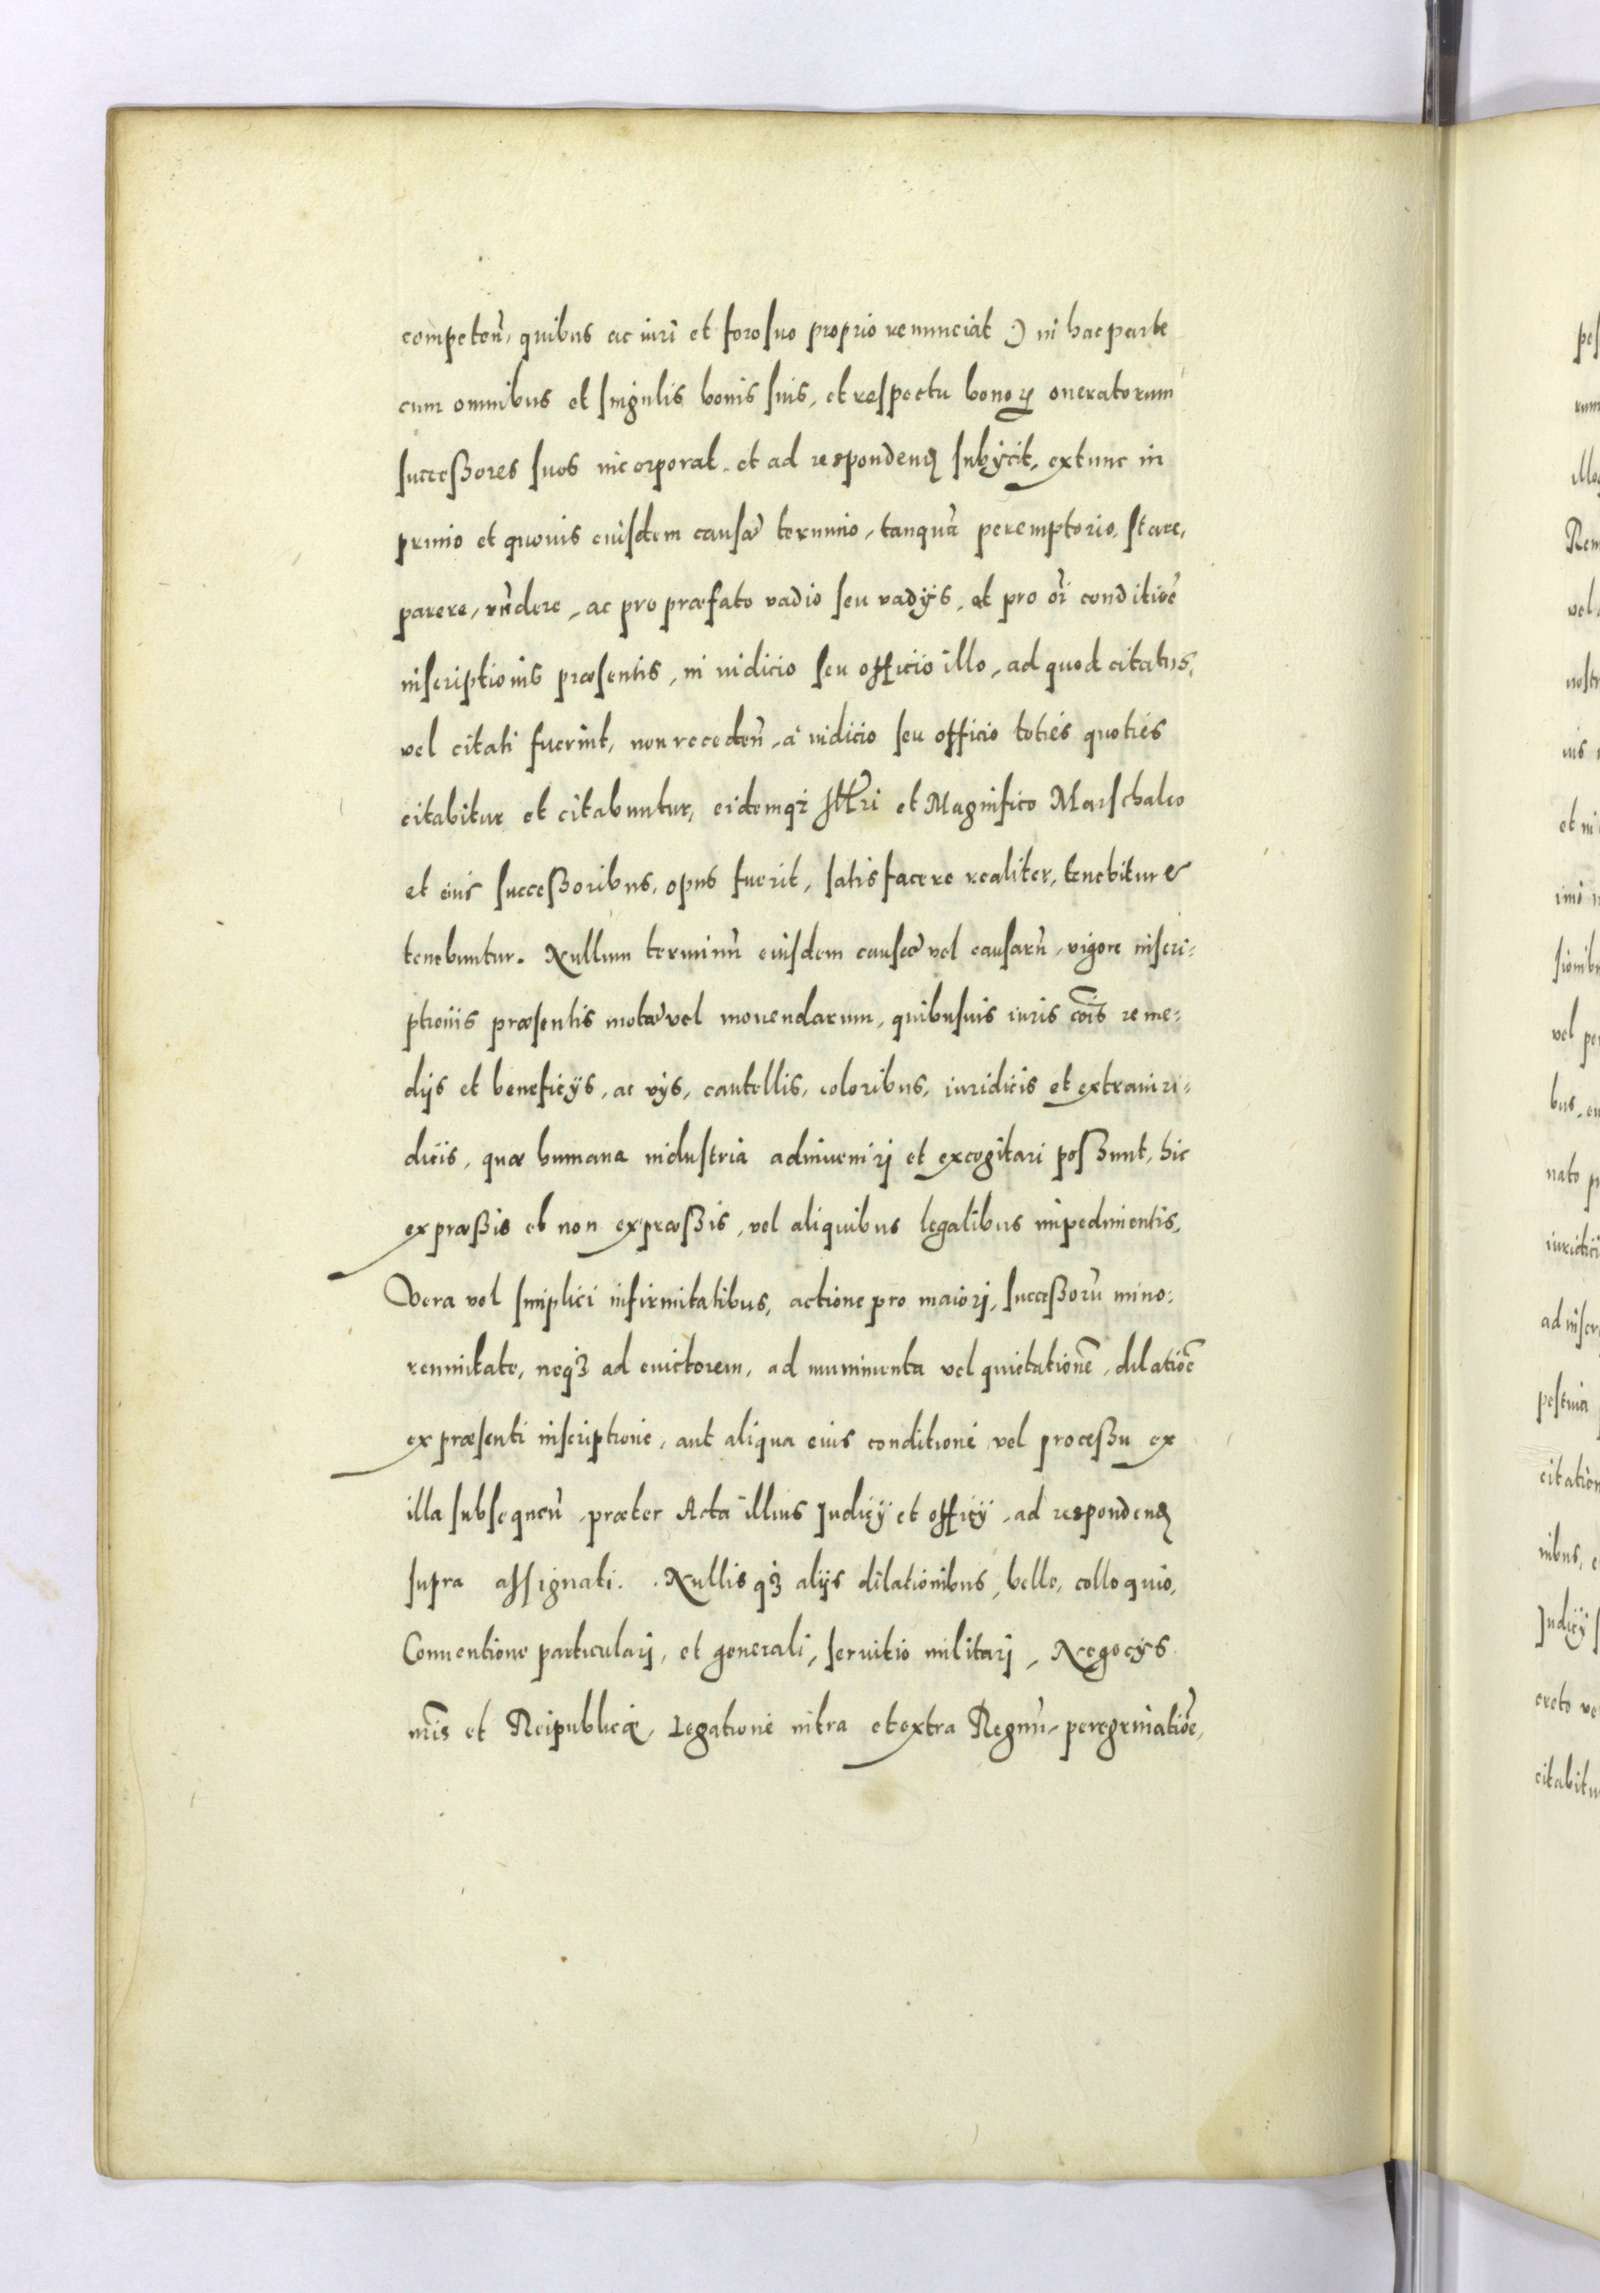 competen̄, quibus ac iuri et foro suo proprio renunciat :) in hac parte
cum omnibus et singulis bonis suis, et respectu bonoꝝ oneratorum
successores suos incorporat, et ad respondenꝺ subijcit, extunc in
primo et quovis eiusdem causæ termino, tanquā peremptorio, stare,
parere, rn̄dere, ac pro præfato vadio seu vadijs, et pro oī conditiōe
inscriptionis præsentis, in iudicio seu officio illo, ad quod citatus,
vel citati fuerint, non receden̄, à iudicio seu officio toties quoties
citabitur et citabuntur, eidemqꝫ Illri et Magnifico Marschalco
et eius successoribus, opus fuerit, satisfacere realiter, tenebitur &
tenebuntur. Nullum terminū eiusdem causæ vel causarū, vigore inscri-
ptionis præsentis motæ vel mouendarum, quibusuis iuris cōis reme-
dijs et beneficijs, ac vijs, cautellis, coloribus, iuridicis et extraiuri-
dicis, quæ humana industria adinuenirj et excogitari possunt, hic
expræssis et non expræssis, vel aliquibus legalibus impedimentis,
Vera vel simplici infirmitatibus, actione pro maiorj, successorū mino-
rennitate, neqꝫ ad euictorem, ad munimenta vel quietationē, dilatiōe
ex præsenti inscriptione, aut aliqua eius conditione vel processu ex
illa subsequen̄, præter Acta illius Judicij et officij, ad respondenꝺ
supra assignati. Nullisqꝫ alijs dilationibus, bello, colloquio,
Conuentione particularj, et generali, seruitio militarj, Negocijs
nr̄is et Reipublicæ, Legatione intra et extra Regnū, peregrinatiōe,
pos
rum
illo
Rem
vel
nostr
uis
et in
imo
sionibu
vel per
bus, eu
nato p
iuridici
ad inscr
pestiua
citation
nibus,
Judicij s
creto ve
citabitu